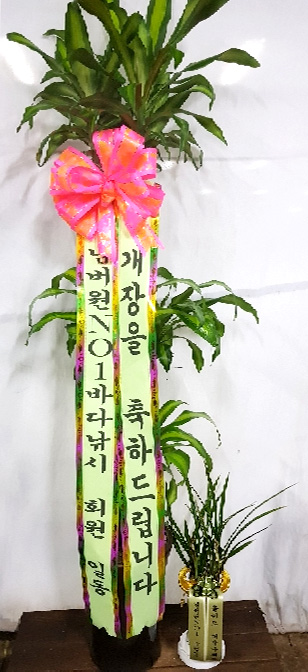 개장을 축하드립니다
넘버원NO1바다낚시 회원 일동